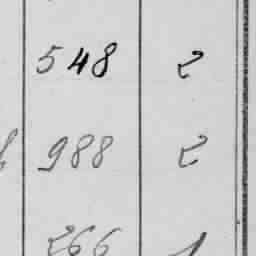 548 2
988 2
266